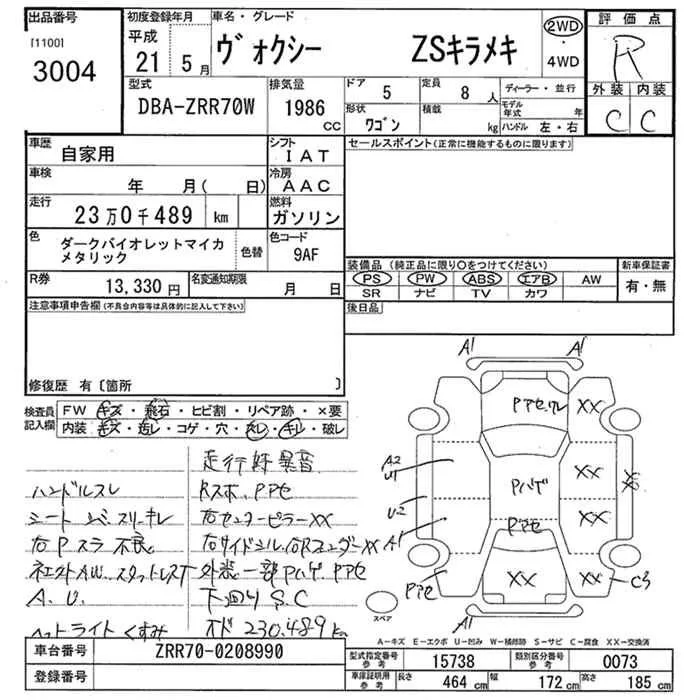 出品番号
[1100]
3004
初度登録年月
平成
21年 5月
車名・グレード
ヴォクシー ZSキラメキ
2WD
・
4WD
評価点
R
外装 内装
C C
型式
DBA-ZRR70W
排気量
1986
CC
ドア 5
定員 8人
ディーラー・並行
形状 ワゴン
積載 kg
モデル年式 年
ハンドル 左・右
車歴 自家用
シフト IAT
車検 年 月( 日)
冷房 AAC
走行 23万0千489 km
燃料 ガソリン
色 ダークバイオレットマイカメタリック
色替
色コード 9AF
R券 13,330 円
名変通知期限 月 日
セールスポイント(正常に機能するものに限ります)
装備品(純正品に限り○をつけてください)
新車保証書
PS PW ABS エアB AW
SR ナビ TV カワ
有・無
後日品
注意事項申告欄(不具合内容等は具体的に記入して下さい)
修復歴 有〔箇所 〕
検査員記入欄
FW キズ・飛石・ヒビ割・リペア跡・×要
内装 キズ・汚レ・コゲ・穴・スレ・キレ・破レ
走行時異音
ハンドルスレ
Rスポ、Pアセ
シート スレキレ
右センターピラーXX
右Pスラ不良
右サイドシル、右RフェンダーXX
社外AW、スタッドレスT
外装一部Pハゲ、Pアセ
A.U.
下廻りS.C
ヘットライトくすみ
オド 230,489k
A1
A1
Pアセ、ワレ
XX
A2
U1
Pハゲ
XX
XX
U2
A1
Pアセ
XX
Pアセ
XX
XX
C3
A1
スペア
A-キズ E-エクボ U-凹み W-補修跡 S-サビ C-腐食 XX-交換済
車台番号 ZRR70-0208990
登録番号
型式指定番号 参考 15738
類別区分番号 参考 0073
車庫証明用 参考
長さ 464 cm
幅 172 cm
高さ 185 cm